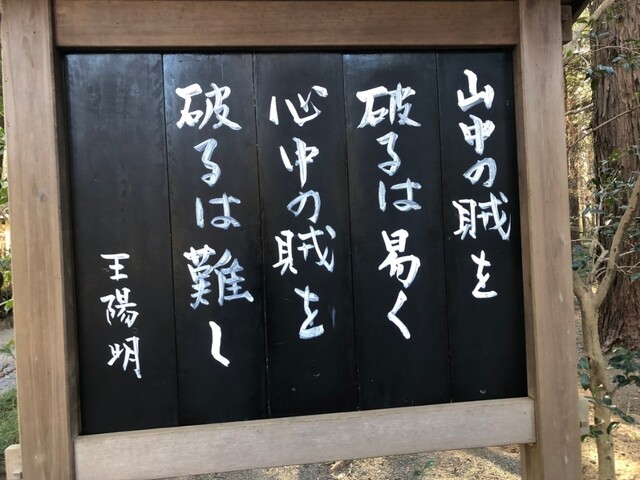 山中の賊を
破るは易く
心中の賊を
破るは難し
王陽明